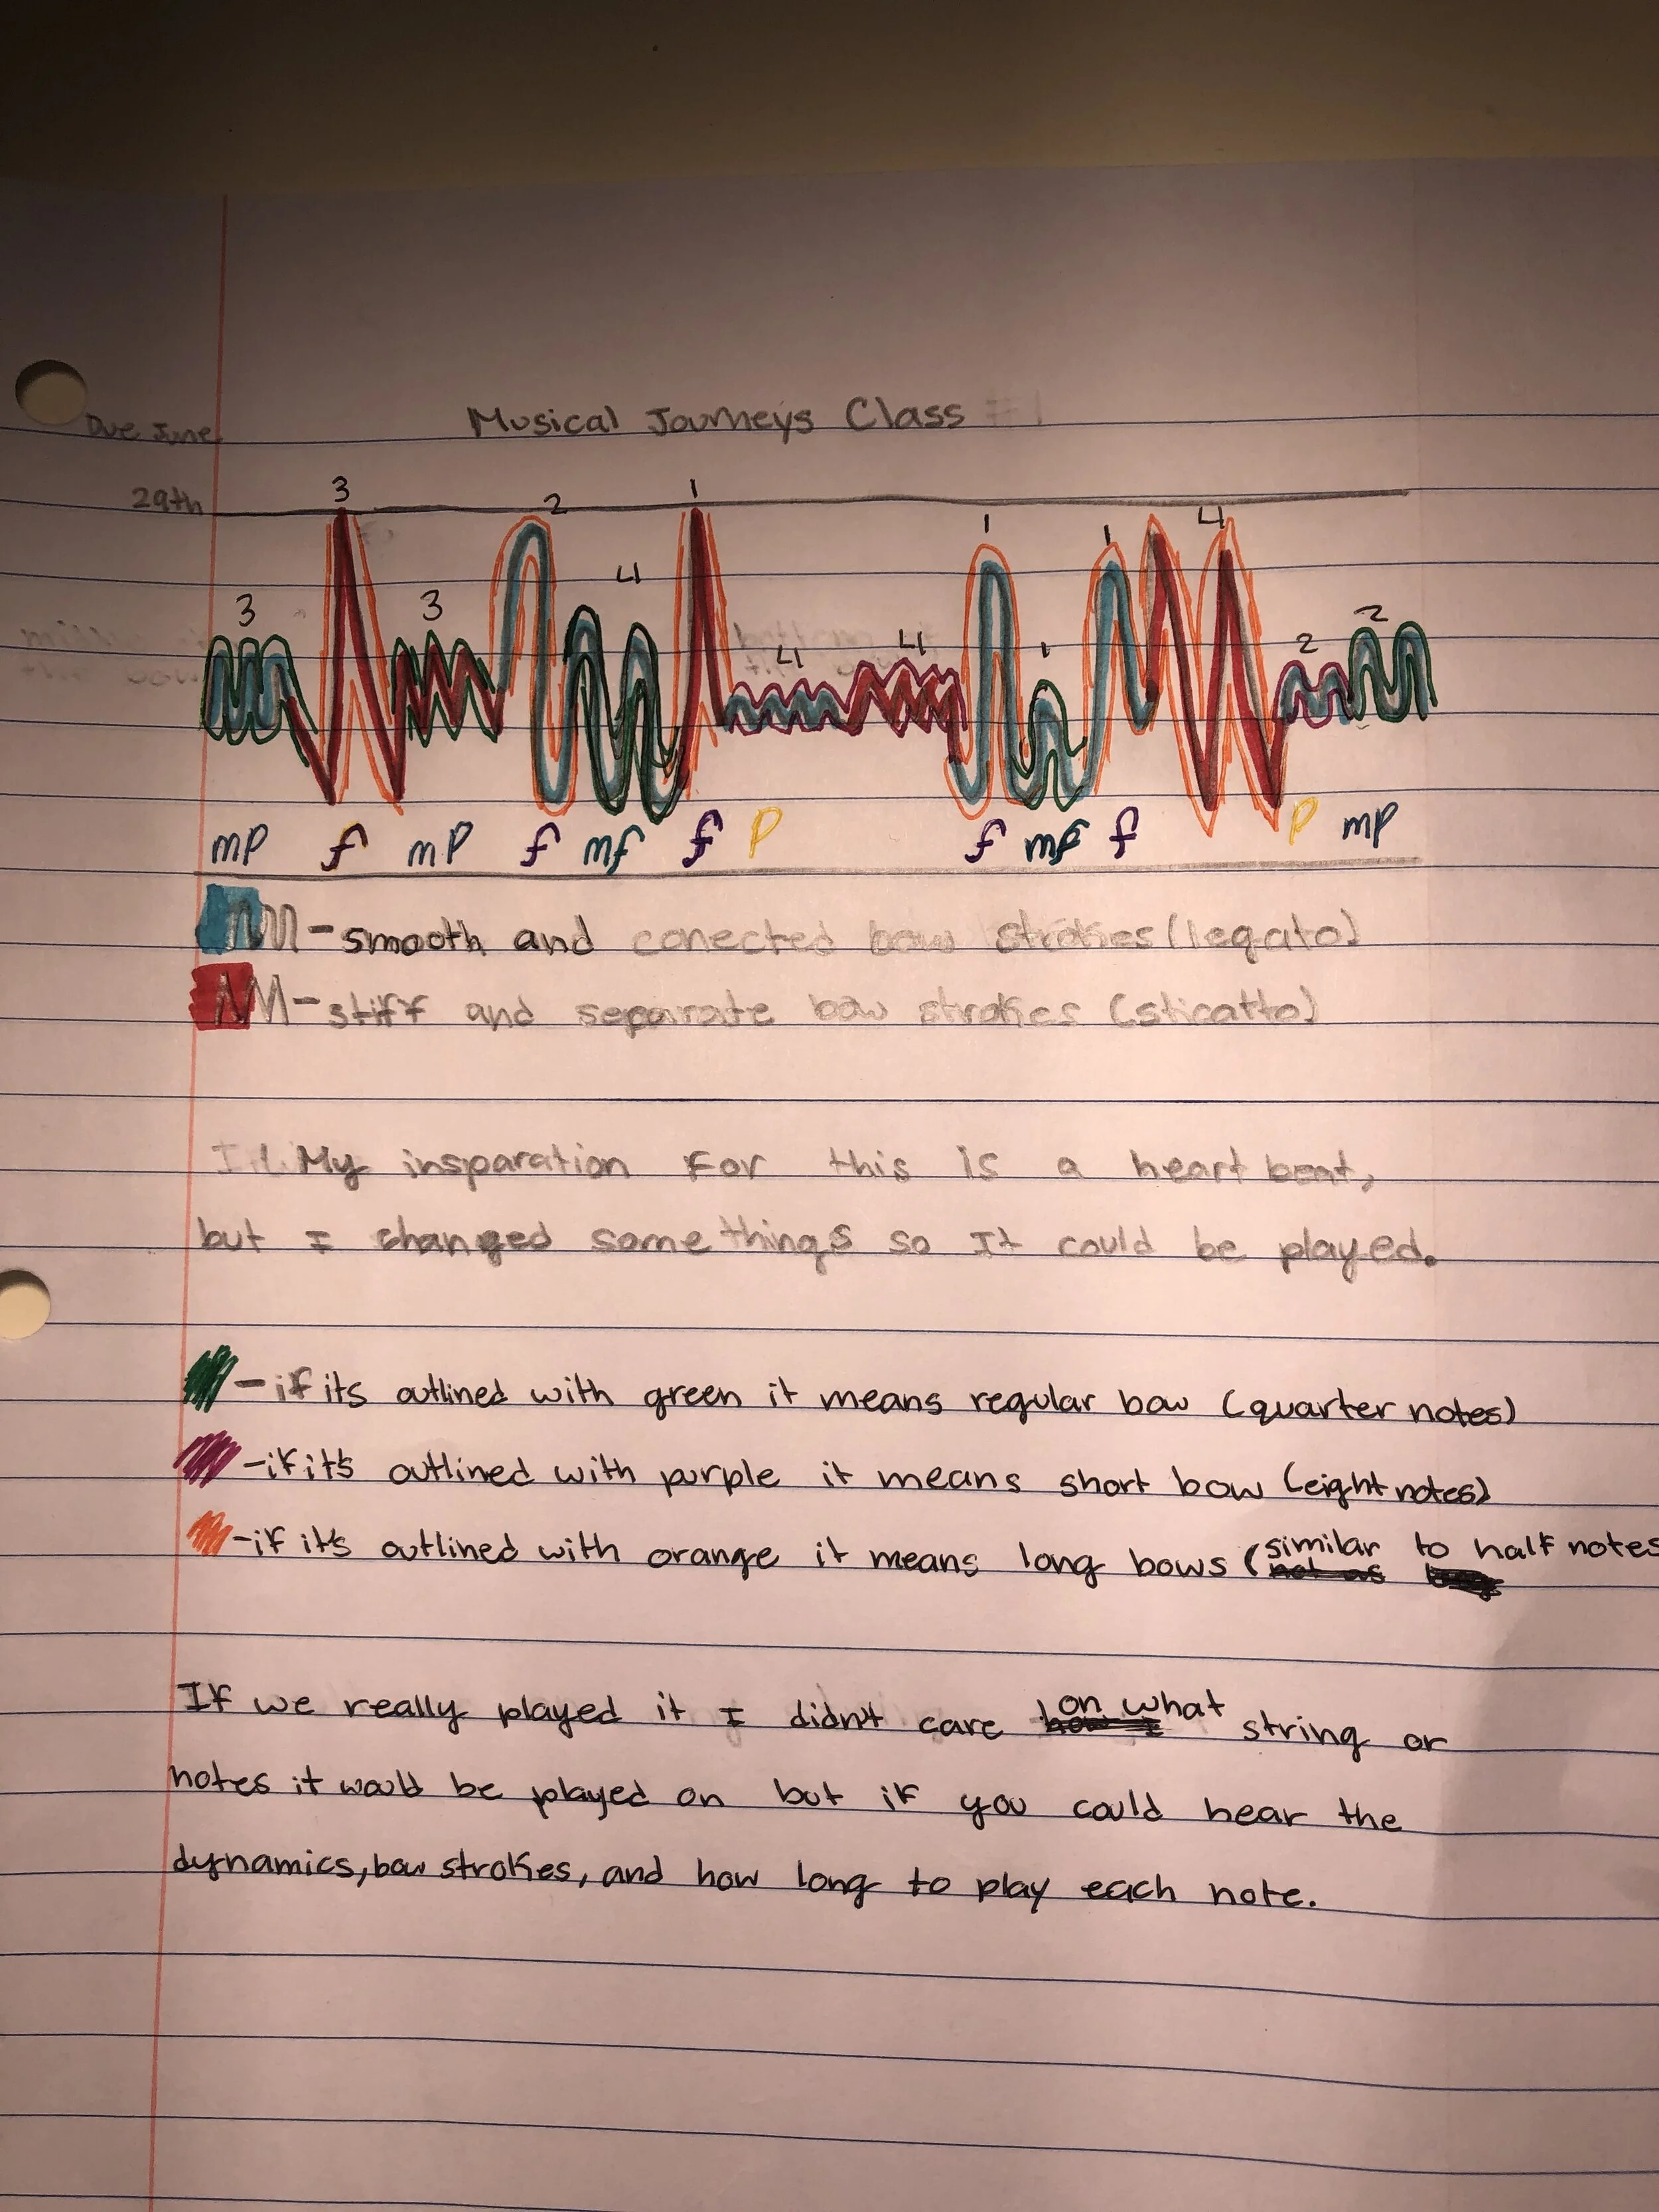 Musical Journeys Class #1
Due June
29th
3 3 3 2 4 1 4 4 1 1 1 4 2 2
mp f mp f mf f p f mf f p mp
- smooth and conected bow strokes (legato)
- stiff and separate bow strokes (sticatto)
My insparation For this is a heart beat,
but I changed some things so It could be played.
- if its outlined with green it means regular bow (quarter notes)
- if it's outlined with purple it means short bow (eight notes)
- if it's outlined with orange it means long bows (similar to half notes
If we really played it I didn't care on what string or
notes it would be played on but if you could hear the
dynamics, bow strokes, and how long to play each note.